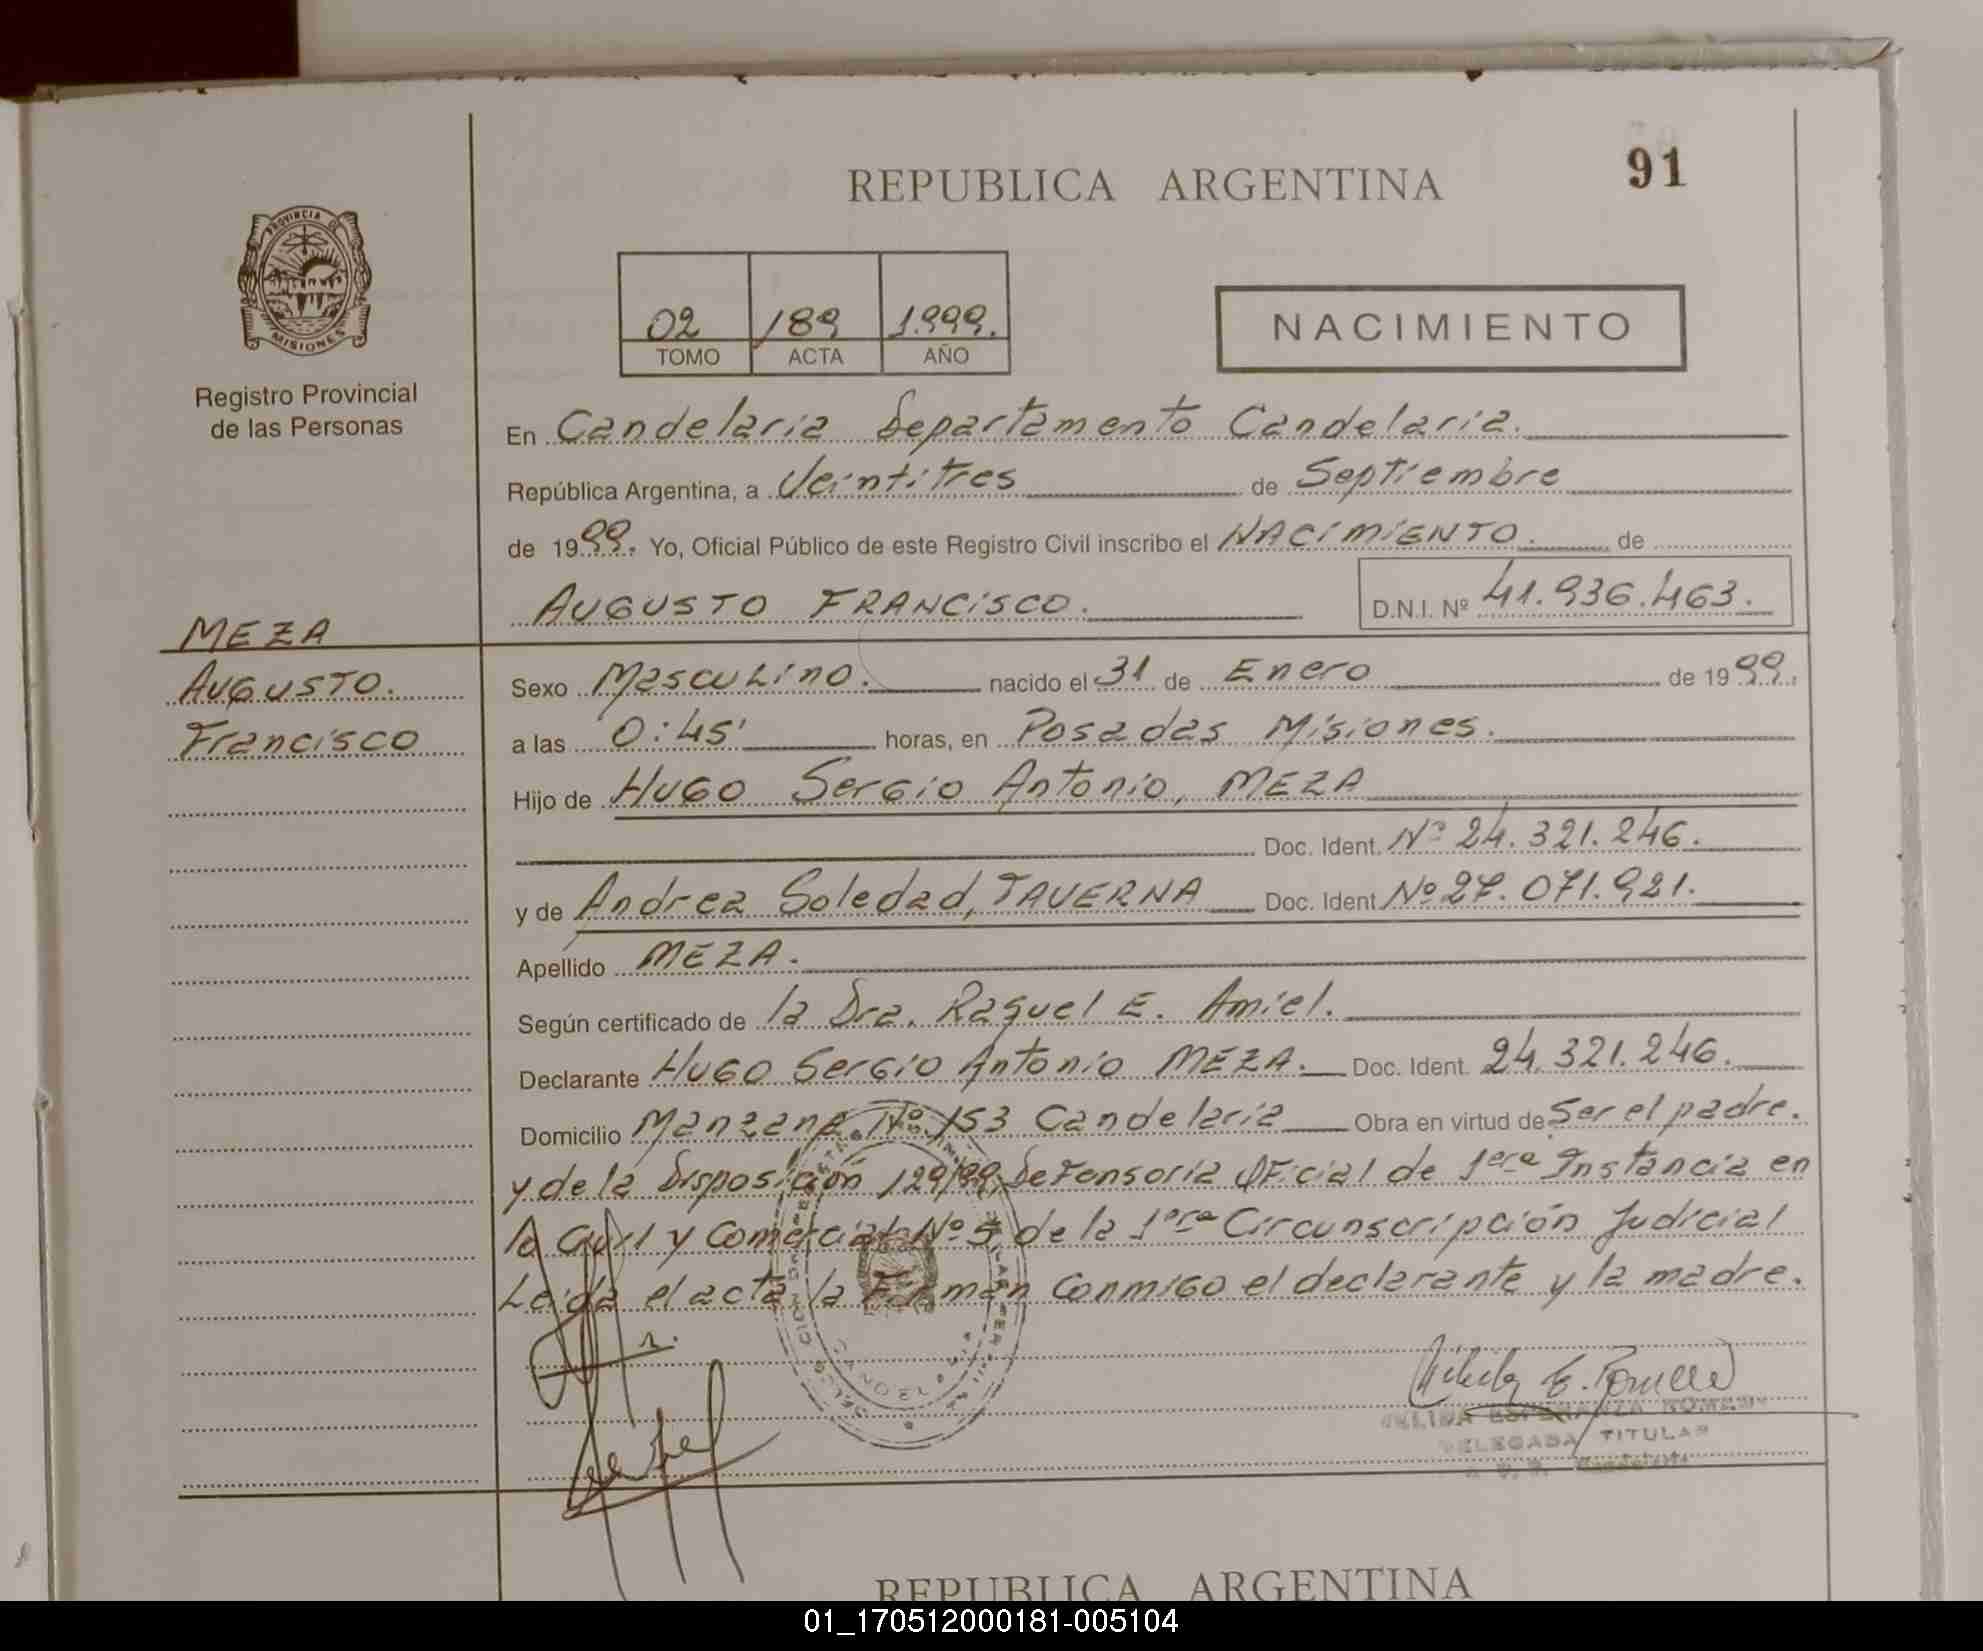 REPUBLICA ARGENTINA
91
PROVINCIA DE
MISIONES
Registro Provincial
de las Personas
02 189 1.999.
TOMO ACTA AÑO
NACIMIENTO
En Candelaria Departamento Candelaria.
República Argentina, a Veintitres de Septiembre
de 1999. Yo, Oficial Público de este Registro Civil inscribo el NACIMIENTO. de
AUGUSTO FRANCISCO. D.N.I. Nº 41.936.463.
MEZA
AUGUSTO.
Francisco
Sexo Masculino. nacido el 31 de Enero de 1999.
a las 0:45' horas, en Posadas Misiones.
Hijo de Hugo Sergio Antonio, MEZA
Doc. Ident. Nº 24.321.246.
y de Andrea Soledad, TAVERNA Doc. Ident Nº 27.071.921.
Apellido MEZA.
Según certificado de la Dra. Raquel E. Amiel.
Declarante Hugo Sergio Antonio MEZA. Doc. Ident. 24.321.246.
Domicilio Manzana Nº 153 Candelaria Obra en virtud de Ser el padre.
y de la Disposición 129/99, Defensoria Oficial de 1era Instancia en
lo Civil y Comercial Nº 5, de la 1era Circunscripción Judicial
Leida el acta la Firman Conmigo el declarante y la madre.
DELEGADA TITULAR
REPUBLICA ARGENTINA
01_170512000181-005104